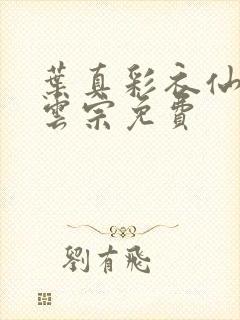 葉真彩衣仙
雲宗免費
劉有飛